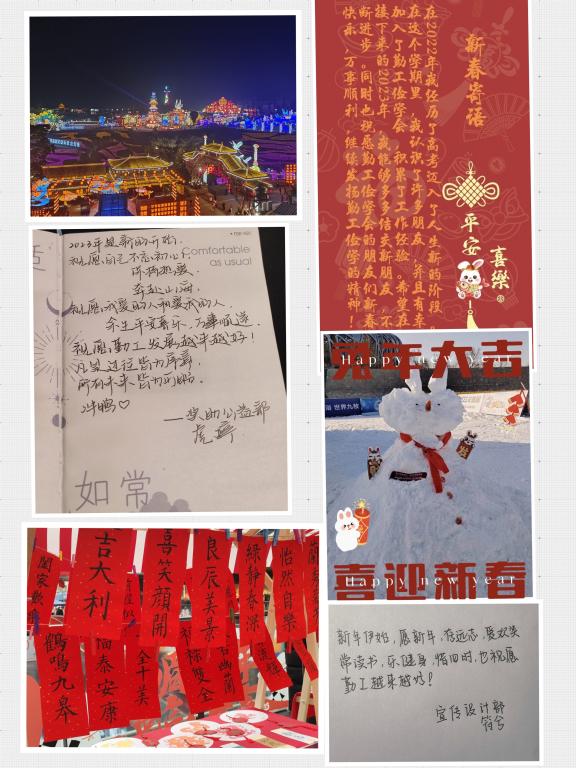 新春寄语
在2022年我经历了高考迈入了人生新的阶段。
在这个学期里，我认识了许多朋友，并且有幸
加入了勤工俭学会，积累了工作经验。希望在
接下来的2023年，我能够多多结交新朋友，不
断进步。同时也祝愿勤工俭学会的朋友们新春
快乐，万事顺利，继续发扬勤工俭学的精神！
平安
喜樂
2023年是新的开始，
祝愿自己不忘初心，
Comfortable
as usual
奔赴山海，
祝愿我爱的人和爱我的人
余生平安喜乐，万事顺遂。
祝愿勤工发展越来越好！
凡是过往皆为序章，
所有未来皆为可盼。
——奖助公益部
如常
兔年大吉
Happy new year
喜迎新春
Happy new year
闔家歡
吉大利
喜笑顔開
良辰美景
綠靜春深
怡然自樂
蘭
鶴鳴九皋
福泰安康
全十美
祿雙全
幽蘭
新年伊始，愿新年，存远志，展欢笑
常读书，乐健身，惜旧时，也祝愿
勤工越来越好！
宣传设计部